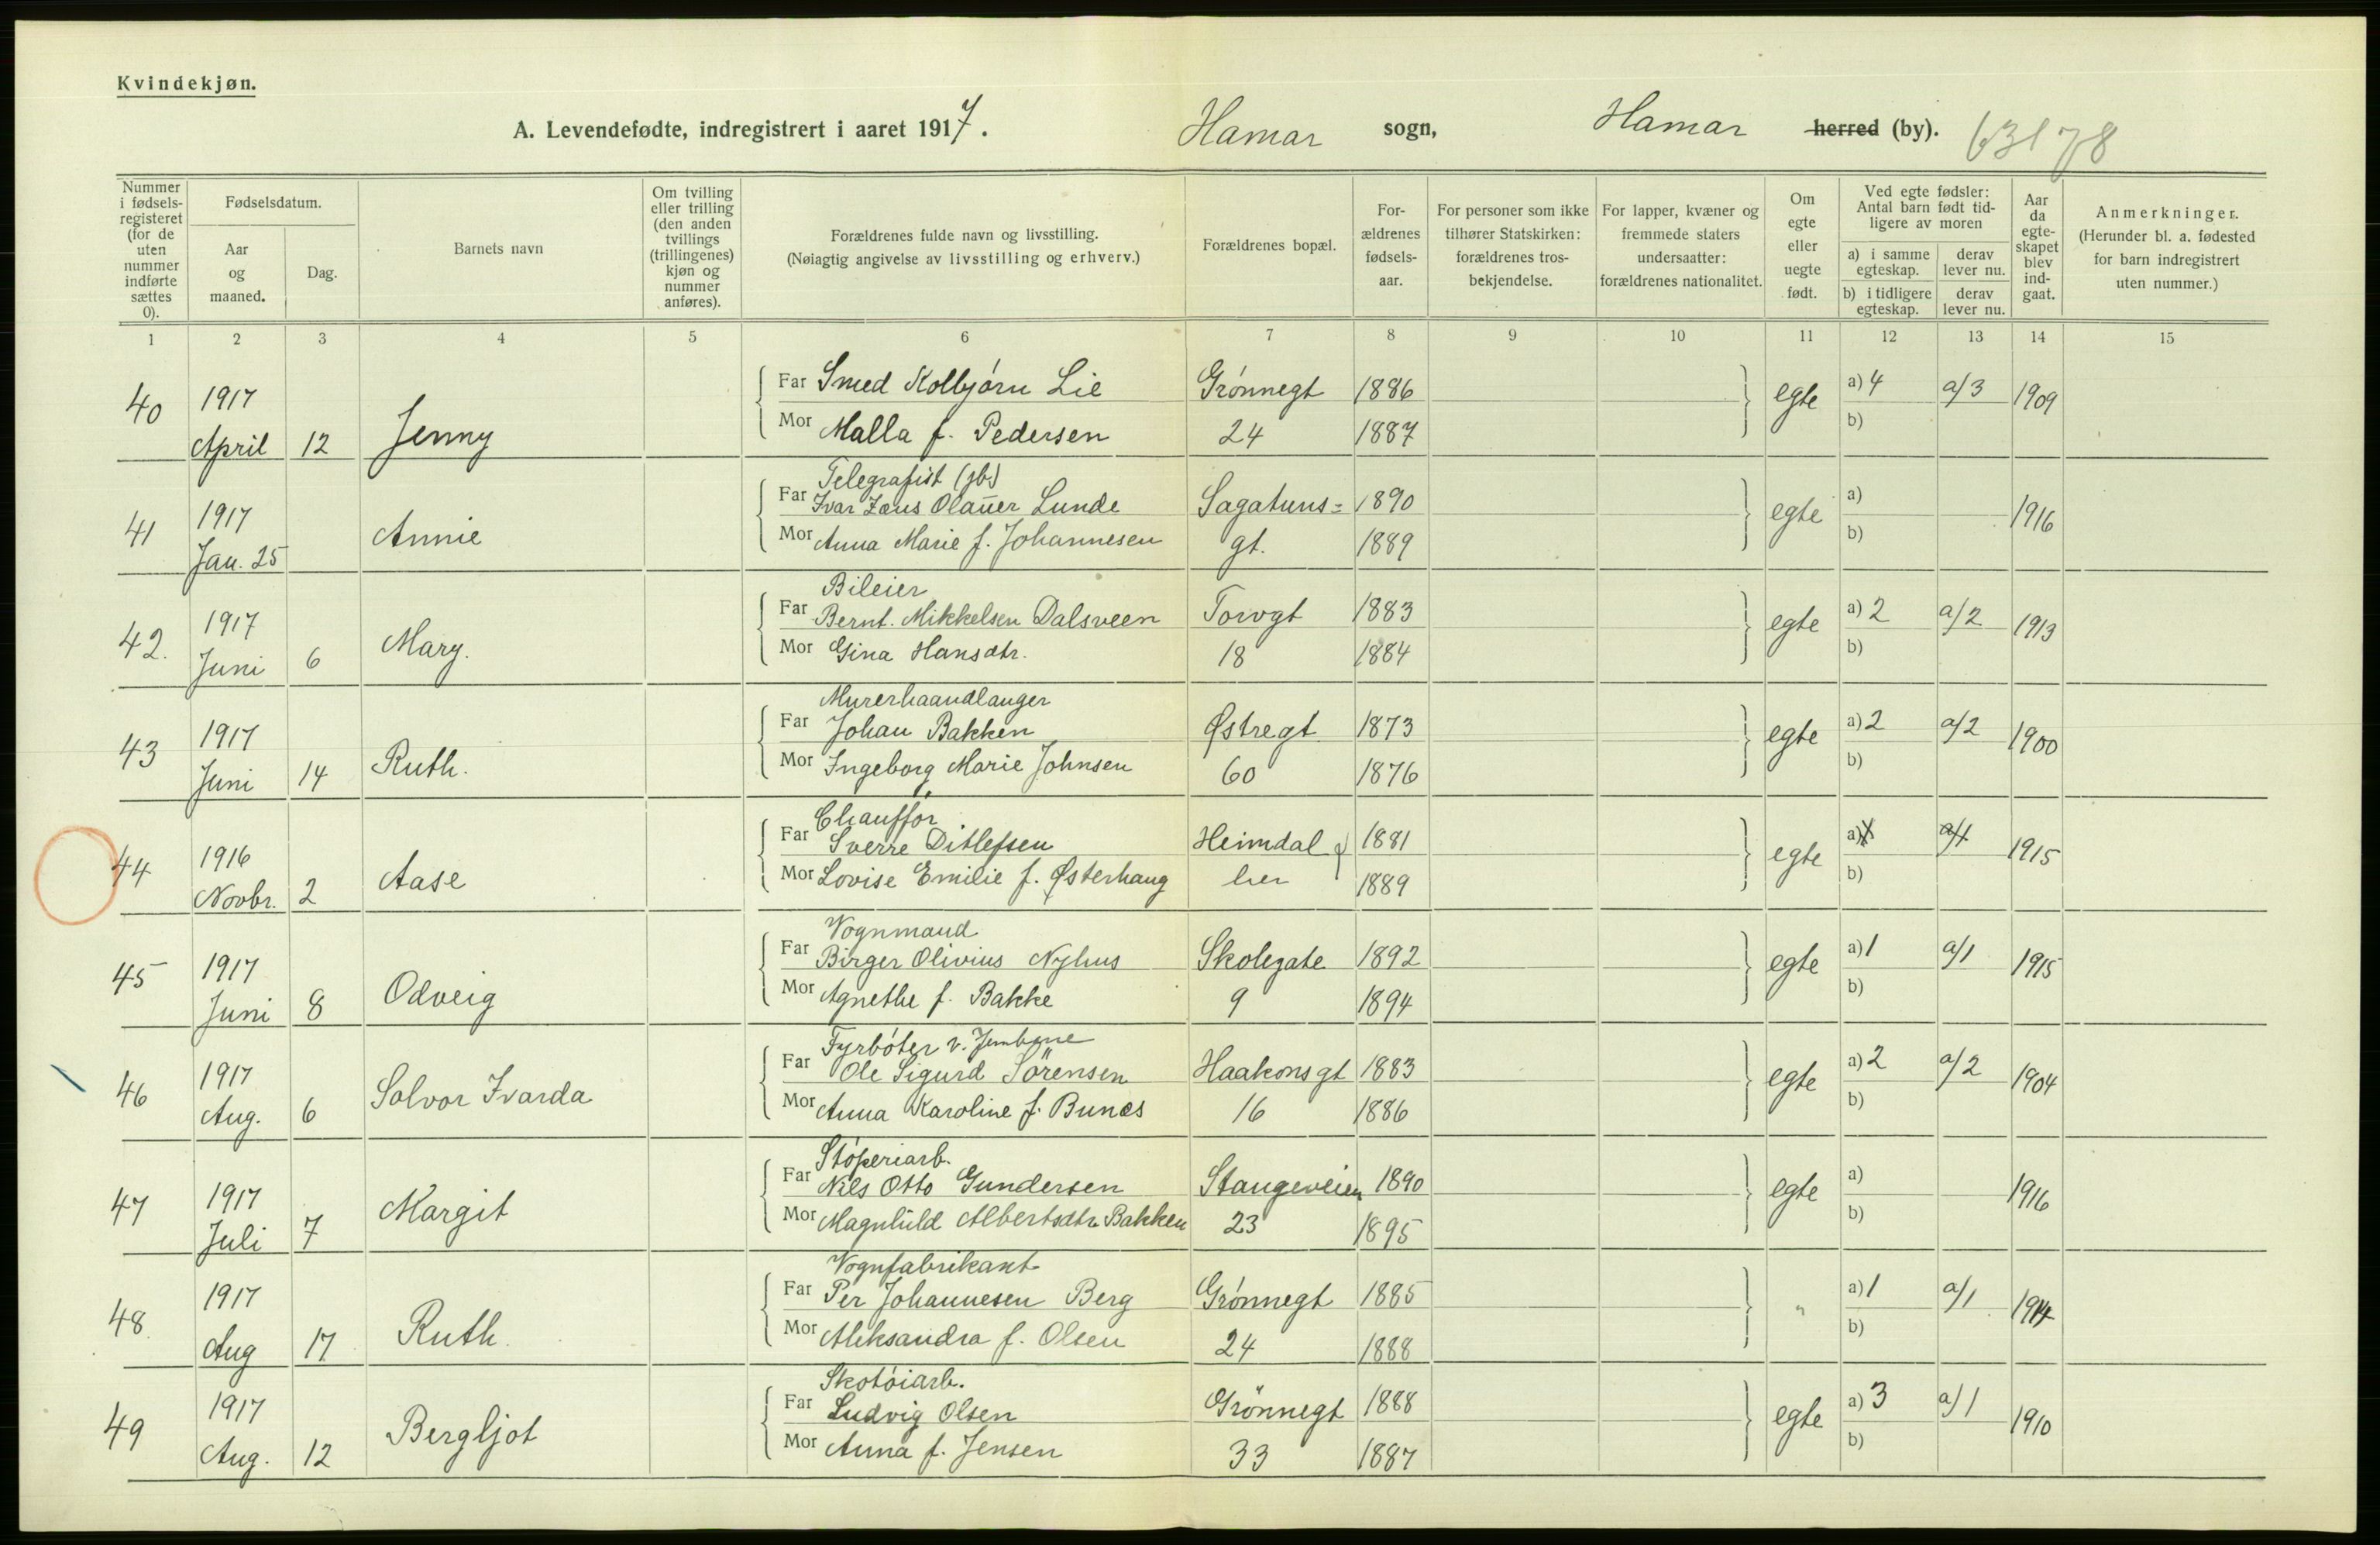 Kvindekjøn.
A. Levendefødte, indregistrert i aaret 1917. Hamar sogn, Hamar herred (by). 63178
Nummer i fødsels-registeret (for de uten nummer indførte sættes 0).
Fødselsdatum.
Aar og maaned.
Dag.
Barnets navn
Om tvilling eller trilling (den anden tvillings (trillingenes) kjøn og nummer anføres).
Forældrenes fulde navn og livsstilling.
(Nøiagtig angivelse av livsstilling og erhverv.)
Forældrenes bopæl.
For-ældrenes fødsels-aar.
For personer som ikke tilhører Statskirken: forældrenes tros-bekjendelse.
For lapper, kvæner og fremmede staters undersaatter: forældrenes nationalitet.
Om egte eller uegte født.
Ved egte fødsler: Antal barn født tid-ligere av moren
a) i samme egteskap. derav lever nu.
b) i tidligere egteskap. derav lever nu.
Aar da egte-skapet blev ind-gaat.
Anmerkninger.
(Herunder bl. a. fødested for barn indregistrert uten nummer.)
1 2 3 4 5 6 7 8 9 10 11 12 13 14 15
40 1917 Far Smed Kolbjórn Lie Grónnegt 1886 egte a) 4 a/3 1909
April 12 Jenny Mor Malla f. Pedersen 24 1887 b)
Telegrafist (jb.)
41 1917 Annie Far Ivar Zæus Olauer Lunde Sagatuns= 1890 egte a) 1916
Jan. 25 Mor Anna Marie f. Johannesen gt. 1889 b)
Bileier
42. 1917 Mary. Far Bernt. Mikkelsen Dalsveen Torvgt 1883 egte a) 2 a/2 1913
Juni 6 Mor Gina Hansdtr. 18 1884 b)
Murerhaandlanger
43 1917 Ruth. Far Johan Bakken Østregt 1873 egte a) 2 a/2 1900
Juni 14 Mor Ingeborg Marie Johnsen 60 1876 b)
Chauffór
44 1916 Aase Far Sverre Ditlefsen Heimdal 1881 egte a) 1 a/1 1915
Novbr. 2 Mor Lovise Emilie f. Østerhaug her 1889 b)
Vognmand
45 1917 Odveig Far Birger Olivius Nyhus Skolegate 1892 egte a) 1 a/1 1915
Juni 8 Mor Agnethe f. Bakke 9 1894 b)
Fyrbóter v. Jernbane
46 1917 Solvor Ivarda Far Ole Sigurd Sörensen Haakonsgt 1883 egte a) 2 a/2 1904
Aug. 6 Mor Anna Karoline f. Bunæs 16 1886 b)
Stóperiarb.
47 1917 Margit Far Nils Otto Gundersen Stangeveien 1890 egte a) 1916
Juli 7 Mor Magnhild Albertsdtr Bakken 23 1895 b)
Vognfabrikant
48 1917 Ruth. Far Per Johannesen Berg Grónnegt 1885 " a) 1 a/1 1914
Aug 17 Mor Aleksandra f. Olsen 24 1888 b)
Skotóiarb.
49 1917 Bergljot Far Ludvig Olsen Grönnegt 1888 egte a) 3 a/1 1910
Aug. 12 Mor Anna f. Jensen 33 1887 b)